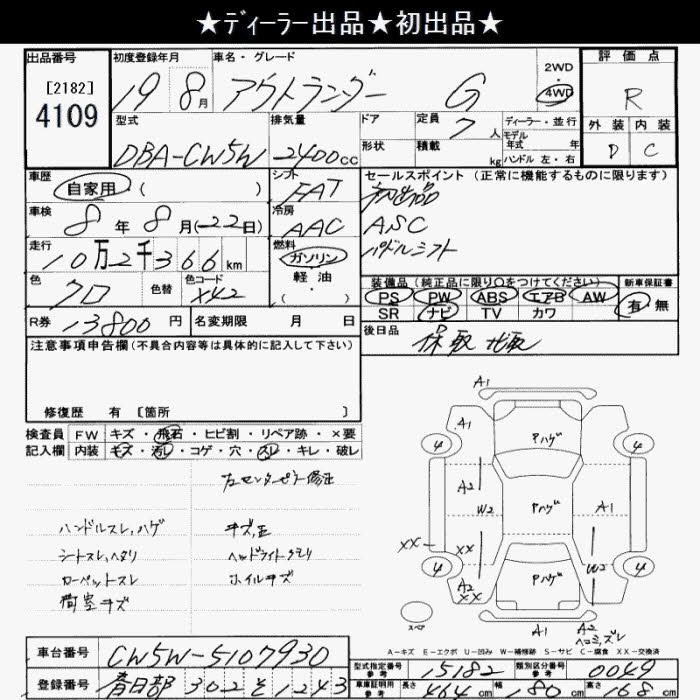 ★ディーラー出品★初出品★
出品番号 初度登録年月 車名・グレード 2WD 評価点
[2182] 4109 19 8月 アウトランダー G 4WD R
型式 排気量 ドア 定員 7人 ディーラー・並行 外装 内装
モデル年式 年
DBA-CW5W 2400cc 形状 積載 kg ハンドル 左・右 D C
車歴 シフト セールスポイント (正常に機能するものに限ります)
自家用 ( ) FAT 初出品
車検 冷房 ASC
8年 8月(-22日) AAC パドルシフト
走行 燃料
10万2千366km ガソリン
色 色替 色コード 軽油 装備品 (純正品に限り○をつけてください) 新車保証書
クロ X42 ( ・ ) PS PW ABS エアB AW 有 無
SR ナビ TV カワ
R券 13800円 名変期限 月 日 後日品 保 取
注意事項申告欄(不具合内容等は具体的に記入して下さい)
修復歴 有 [箇所 ]
検査員 FW キズ・飛石・ヒビ割・リペア跡・×要
記入欄 内装 キズ・汚レ・コゲ・穴・スレ・キレ・破レ
左センターピラー修正
ハンドルスレ,ハゲ キズ,凹
シートスレ,ヘタリ ヘッドライトクモリ
カーペットスレ ホイルキズ
荷室キズ
A1
A1 Pハゲ
4 4
A2 W2 Pハゲ A1
XX XX
4 W2 4
A2 XX Pハゲ
スペア A1 A2 ヘコミ,ズレ
A-キズ E-エクボ U-凹み W-補修跡 S-サビ C-腐食 XX-交換済
車台番号 CW5W-5107930 型式指定番号 参考 15182 類別区分番号 参考 0049
登録番号 春日部 302 そ 1243 車庫証明用 参考 長さ 464cm 幅 180cm 高さ 168cm